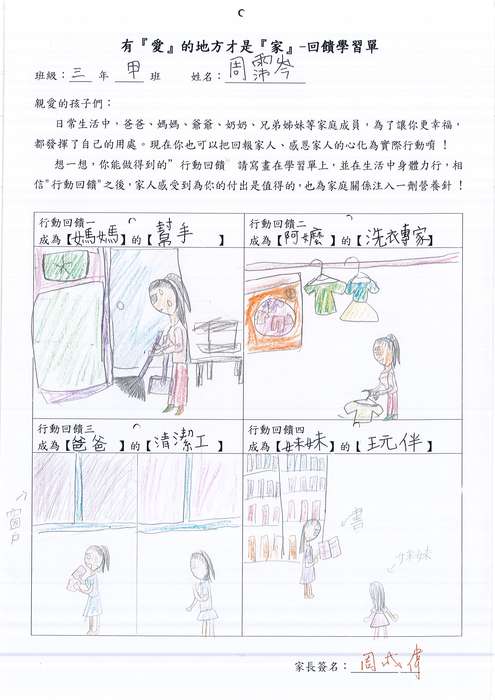 有『愛』的地方才是『家』-回饋學習單
班級：三 年 甲 班 姓名：周霈岑
親愛的孩子們：
日常生活中，爸爸、媽媽、爺爺、奶奶、兄弟姊妹等家庭成員，為了讓你更幸福，
都發揮了自己的用處。現在你也可以把回報家人、感恩家人的心化為實際行動唷！
想一想，你能做得到的"行動回饋"請寫畫在學習單上，並在生活中身體力行，相
信"行動回饋"之後，家人感受到為你的付出是值得的，也為家庭關係注入一劑營養針！
行動回饋一
成為【媽媽】的【幫手】
行動回饋二
成為【阿嬤】的【洗衣專家】
行動回饋三
成為【爸爸】的【清潔工】
行動回饋四
成為【妹妹】的【玩伴】
窗戶
書
妹妹
家長簽名：周成偉